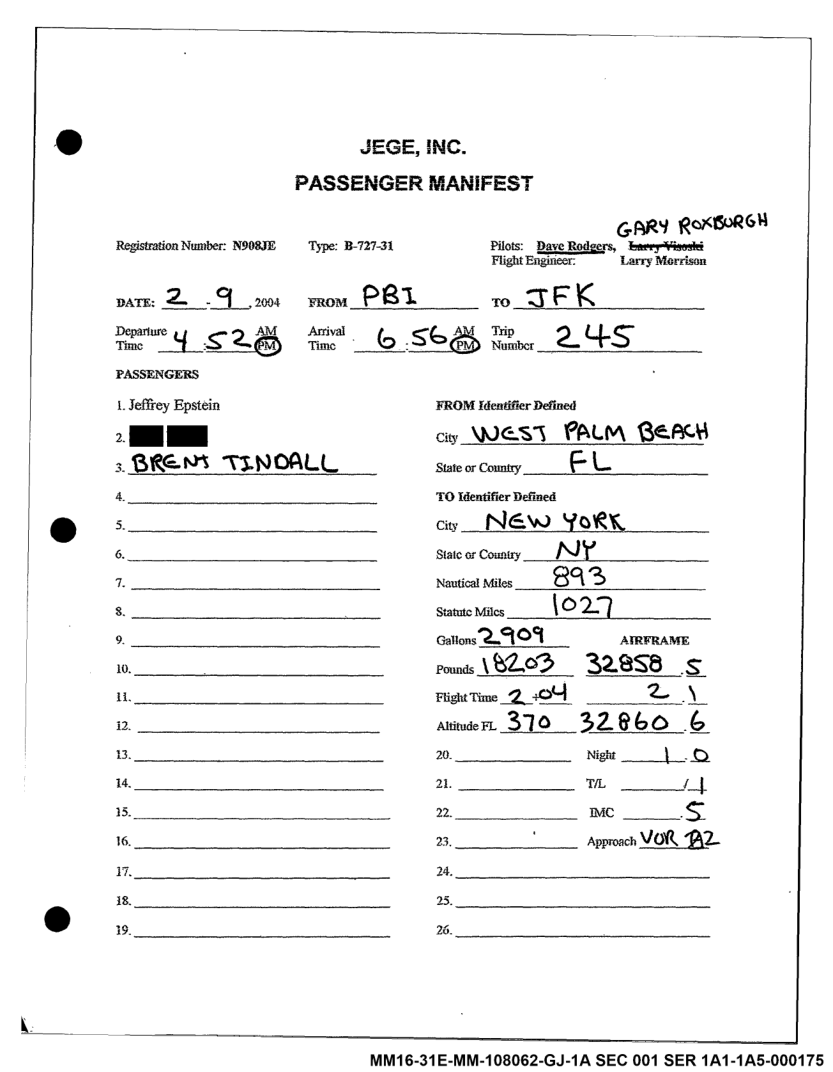 JEGE, INC.
PASSENGER MANIFEST
GARY ROXBURGH
Registration Number: N908JE Type: B-727-31 Pilots: Dave Rodgers, Larry Visoski
Flight Engineer: Larry Morrison
DATE: 2 - 9 , 2004 FROM PBI TO JFK
Departure Time 4 : 52 AM PM Arrival Time 6 : 56 AM PM Trip Number 245
PASSENGERS
1. Jeffrey Epstein FROM Identifier Defined
2. City WEST PALM BEACH
3. BRENT TINDALL State or Country FL
4. TO Identifier Defined
5. City NEW YORK
6. State or Country NY
7. Nautical Miles 893
8. Statute Miles 1027
9. Gallons 2909 AIRFRAME
10. Pounds 18203 32858 .5
11. Flight Time 2 + 04 2 .1
12. Altitude FL 370 32860 .6
13. 20. Night 1 .0
14. 21. T/L / 1
15. 22. IMC .5
16. 23. Approach VOR
17. 24.
18. 25.
19. 26.
MM16-31E-MM-108062-GJ-1A SEC 001 SER 1A1-1A5-000175